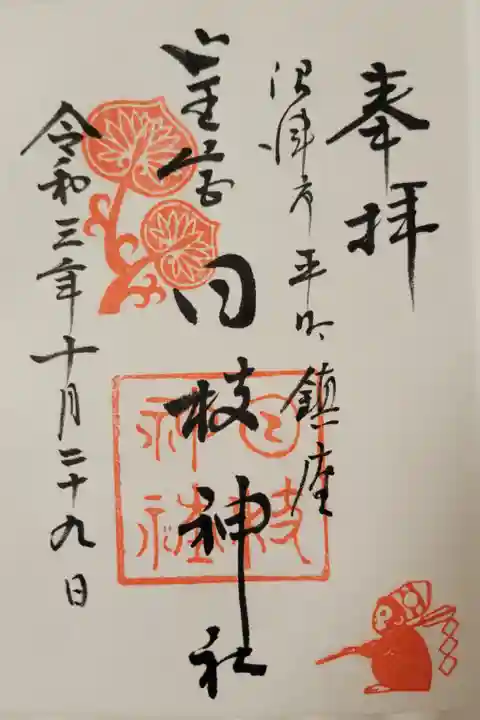 奉拝
沼津市平町鎮座
山王宮 日枝神社
日枝
神社
令和三年十月二十九日